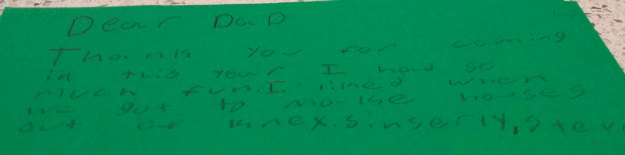 Dear DaD
Thank you for coming
in this year I had so
much fun. I liked when
we got to make houses
out of knex. sinserly, steve